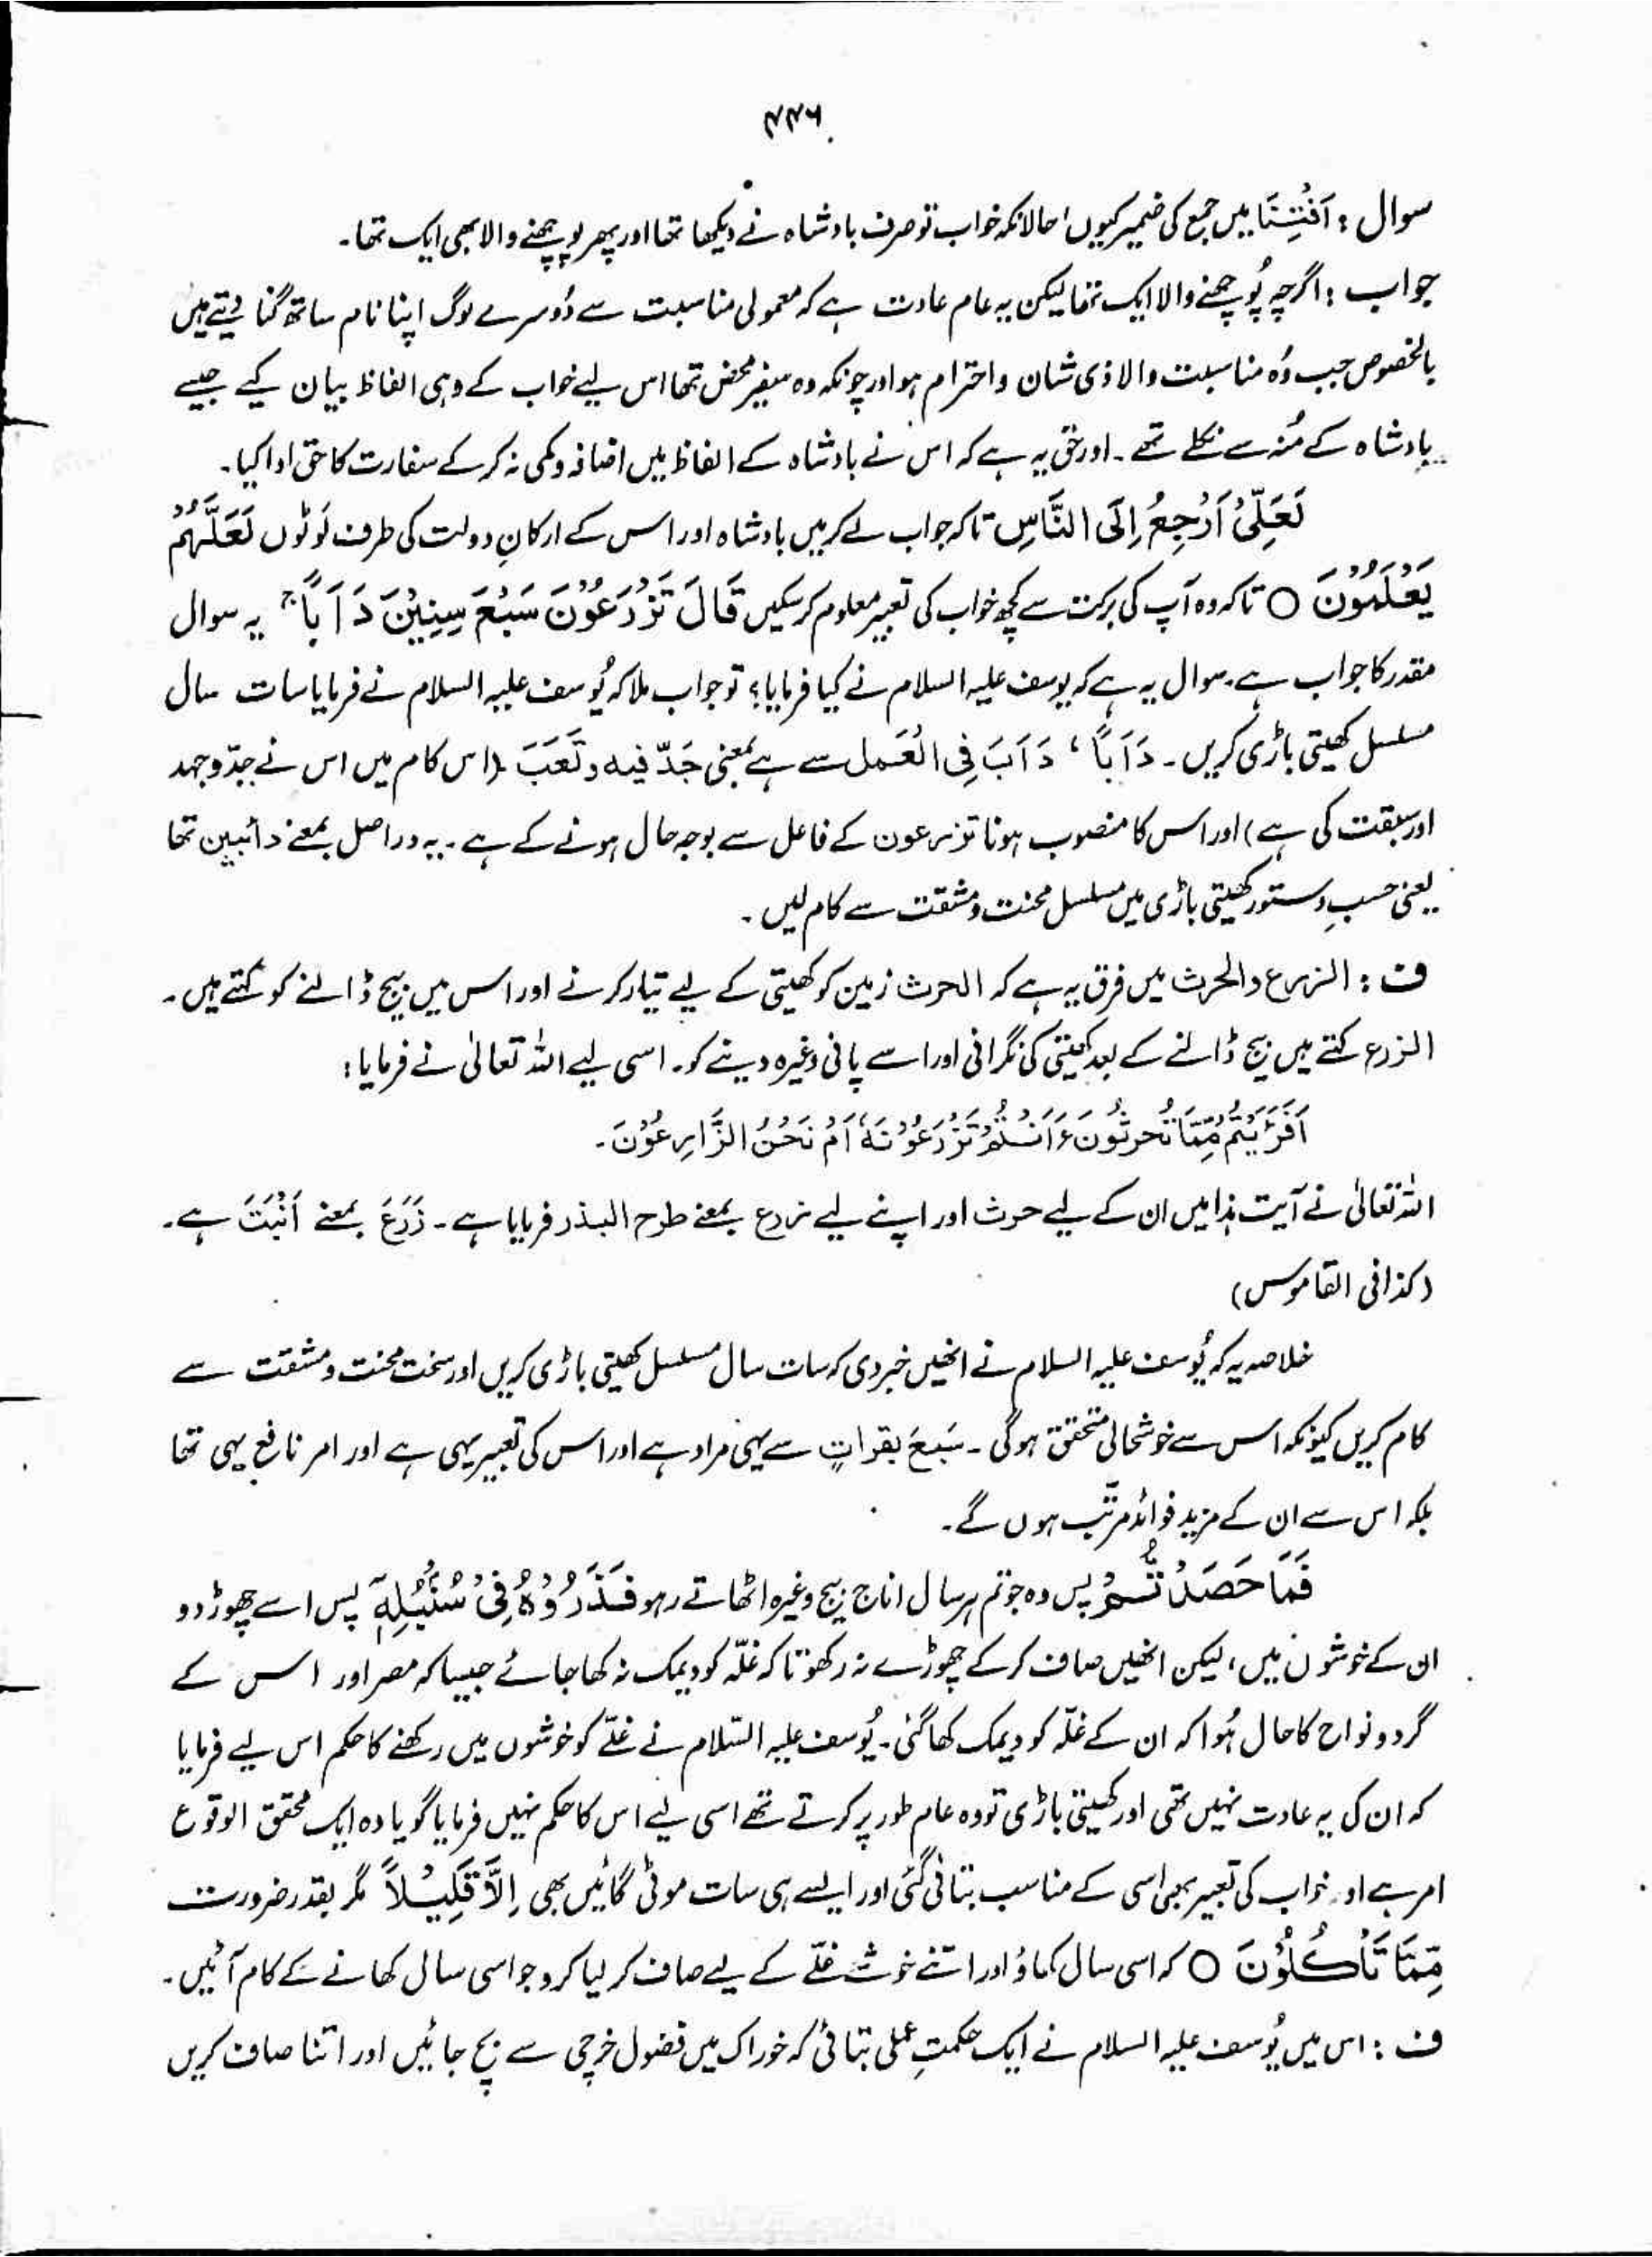 ۴۴۶
سوال : اَفْتِنَا میں جمع کی ضمیر کیوں؛ حالانکہ خواب تو صرف بادشاہ نے دیکھا تھا اور پھر پوچھنے والا بھی ایک تھا۔
جواب : اگرچہ پُوچھنے والا ایک تھا لیکن یہ عام عادت ہے کہ معمولی مناسبت سے دُوسرے لوگ اپنا نام ساتھ گنا دیتے ہیں
بالخصوص جب وُہ مناسبت والا ذی شان و احترام ہو اور چونکہ وہ سفیر محض تھا اس لیے خواب کے وہی الفاظ بیان کیے جیسے
بادشاہ کے مُنہ سے نکلے تھے۔ اور حق یہ ہے کہ اس نے بادشاہ کے الفاظ میں اضافہ و کمی نہ کر کے سفارت کا حق ادا کیا۔
لَعَلِّیْ اَرْجِعُ اِلَی النَّاسِ تاکہ جواب لے کر میں بادشاہ اور اس کے ارکانِ دولت کی طرف لَوٹوں لَعَلَّہُمْ
یَعْلَمُوْنَ ○ تاکہ وہ آپ کی برکت سے کچھ خواب کی تعبیر معلوم کر سکیں قَالَ تَزْرَعُوْنَ سَبْعَ سِنِیْنَ دَاَبًا ج یہ سوال
مقدر کا جواب ہے۔ سوال یہ ہے کہ یوسف علیہ السلام نے کیا فرمایا؟ تو جواب ملا کہ یُوسف علیہ السلام نے فرمایا سات سال
مسلسل کھیتی باڑی کریں۔ دَاَبًا ، دَاَبَ فِی الْعَمل سے ہے بمعنی جَدَّ فیہ وتَعَبَ (اس کام میں اس نے جدّوجہد
اور سبقت کی ہے) اور اس کا منصوب ہونا تزرعون کے فاعل سے بوجہ حال ہونے کے ہے۔ یہ دراصل بمعنے دائبین تھا
یعنی حسبِ دستور کھیتی باڑی میں مسلسل محنت و مشقت سے کام لیں۔
ف : الزرع والحرث میں فرق یہ ہے کہ الحرث زمین کو کھیتی کے لیے تیار کرنے اور اس میں بیج ڈالنے کو کہتے ہیں۔
الزرع کہتے ہیں بیج ڈالنے کے بعد کھیتی کی نگرانی اور اسے پانی وغیرہ دینے کو۔ اسی لیے اللہ تعالیٰ نے فرمایا :
اَفَرَءَیْتُمْ مِّمَّا تَحْرُثُوْنَ ءَاَنْتُمْ تَزْرَعُوْنَہٗ اَمْ نَحْنُ الزَّارِعُوْنَ۔
اللہ تعالیٰ نے آیت ہذا میں ان کے لیے حرث اور اپنے لیے زرع بمعنے طرح البذر فرمایا ہے۔ زَرَعَ بمعنے اَنْبَتَ ہے۔
(کذا فی القاموس)
خلاصہ یہ کہ یُوسف علیہ السلام نے انھیں خبر دی کہ سات سال مسلسل کھیتی باڑی کریں اور سخت محنت و مشقت سے
کام کریں کیونکہ اس سے خوشحالی متحقق ہوگی۔ سَبعَ بقراتٍ سے یہی مراد ہے اور اس کی تعبیر یہی ہے اور امر نافع یہی تھا
بلکہ اس سے ان کے مزید فوائد مرتّب ہوں گے۔
فَمَا حَصَدْتُّمْ پس وہ جو تم ہر سال اناج بیج وغیرہ اٹھاتے رہو فَذَرُوْہُ فِیْ سُنْۢبُلِہٖٓ پس اسے چھوڑ دو
ان کے خوشوں میں، لیکن انھیں صاف کر کے چھوڑے نہ رکھو تاکہ غلّہ کو دیمک نہ کھا جائے جیسا کہ مصر اور اس کے
گرد و نواح کا حال ہُوا کہ ان کے غلّہ کو دیمک کھا گئی۔ یُوسف علیہ السّلام نے غلّے کو خوشوں میں رکھنے کا حکم اس لیے فرمایا
کہ ان کی یہ عادت نہیں تھی اور کھیتی باڑی تو وہ عام طور پر کرتے تھے اسی لیے اس کا حکم نہیں فرمایا گویا وہ ایک محقق الوقوع
امر ہے اور خواب کی تعبیر بھی اسی کے مناسب بتائی گئی اور ایسے ہی سات موٹی گائیں بھی اِلَّا قَلِیْلًا مگر بقدر ضرورت
مِّمَّا تَاْکُلُوْنَ ○ کہ اسی سال کھاؤ اور اتنے خوشے غلّے کے لیے صاف کر لیا کرو جو اسی سال کھانے کے کام آئیں۔
ف : اس میں یُوسف علیہ السلام نے ایک حکمتِ عملی بتائی کہ خوراک میں فضول خرچی سے بچ جائیں اور اتنا صاف کریں